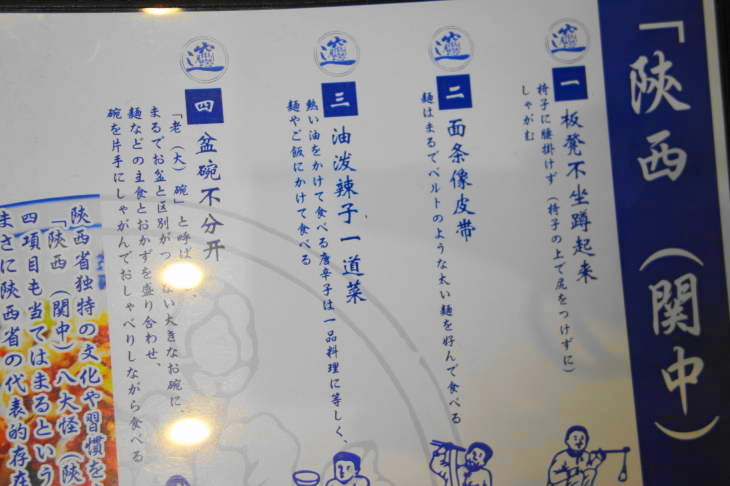 「陝西（関中）
一 板凳不坐蹲起来
椅子に腰掛けず（椅子の上で尻をつけずに）
しゃがむ
二 面条像皮帯
麺はまるでベルトのような太い麺を好んで食べる
三 油泼辣子一道菜
熱い油をかけて食べる唐辛子は一品料理に等しく、
麺やご飯にかけて食べる
四 盆碗不分开
「老（大）碗」と呼ば
まるでお盆と区別がつ ない大きなお碗に、
麺などの主食とおかずを盛り合わせ、
碗を片手にしゃがんでおしゃべりしながら食べる
陝西省独特の文化や習慣を
「陝西（関中）八大怪（陝
四項目も当てはまるという
まさに陝西省の代表的存在